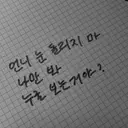 언니 눈 흘리지 마
나만 봐
누굴 보는거야?